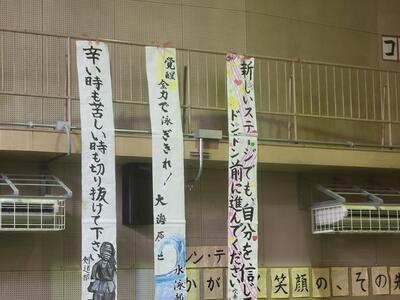 辛い時も苦しい時も切り抜けて下さい
剣道部
覚醒
全力で泳ぎきれ!
大海原に出
水泳部
新しいステージでも、自分を信じ
ドンドン前に進んでください
コ
ンテ
かが
笑顔の、その先